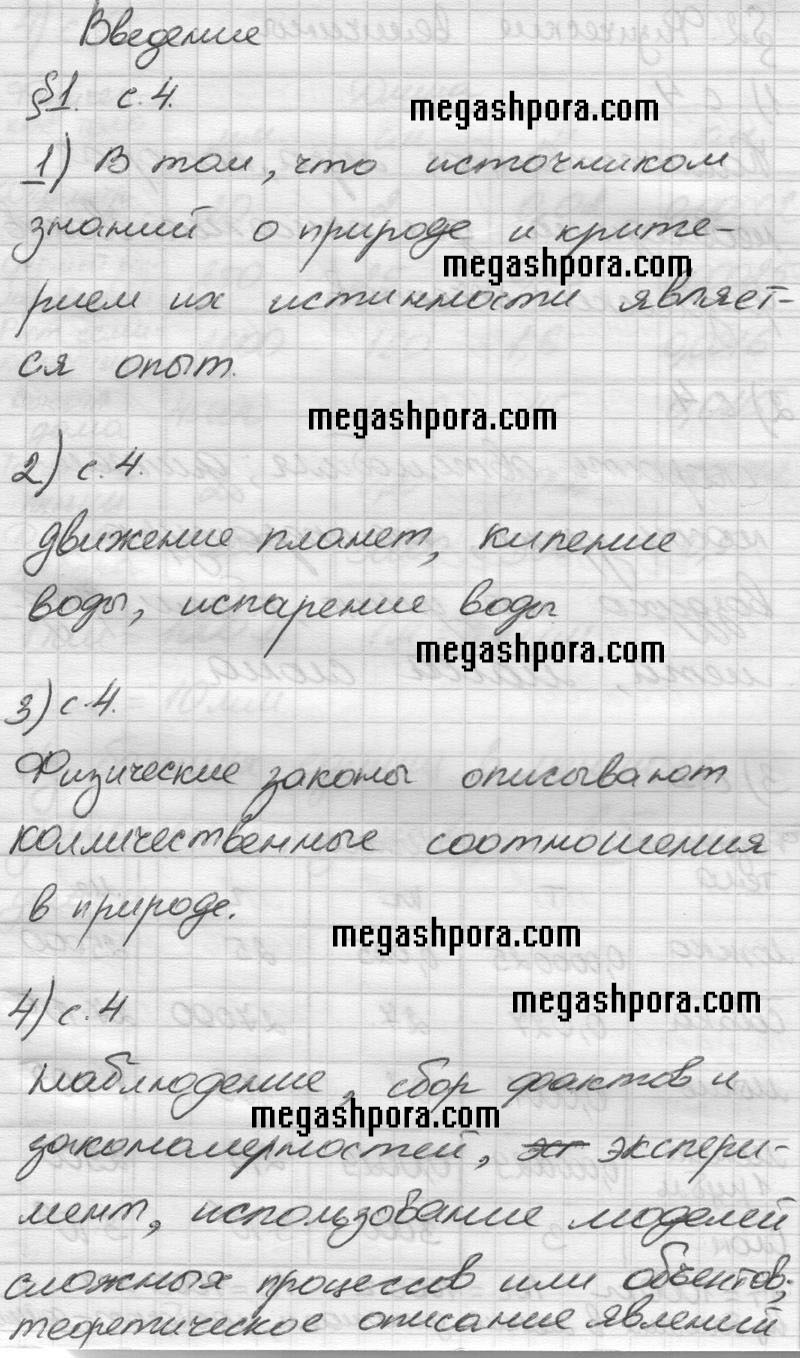 Введение
§1. с.4.
megashpora.com
1) В том, что источником
знаний о природе и крите-
megashpora.com
рием их истинности являет-
ся опыт.
megashpora.com
2) с.4.
движение планет, кипение
воды, испарение воды
megashpora.com
3) с.4.
Физические законы описывают
колличественные соотношения
в природе.
megashpora.com
4) с.4
megashpora.com
наблюдение, сбор фактов и
megashpora.com
закономерностей, эк экспери-
мент, использование моделей
сложных процессов или объектов,
теоретическое описание явлений